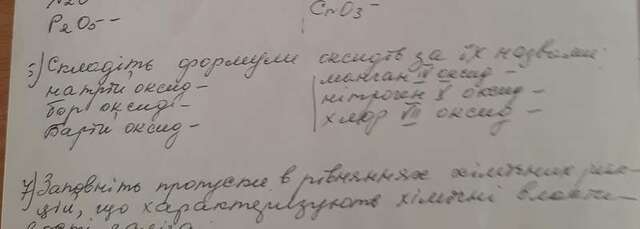 P2O5 –
CrO3 –
5) Складіть формули оксидів за їх назвами:
натрій оксид –
бор оксид –
барій оксид –
манган IV оксид –
нітроген V оксид –
хлор VII оксид –
7) Заповніть пропуски в рівняннях хімічних реак-
цій, що характеризують хімічні власти-